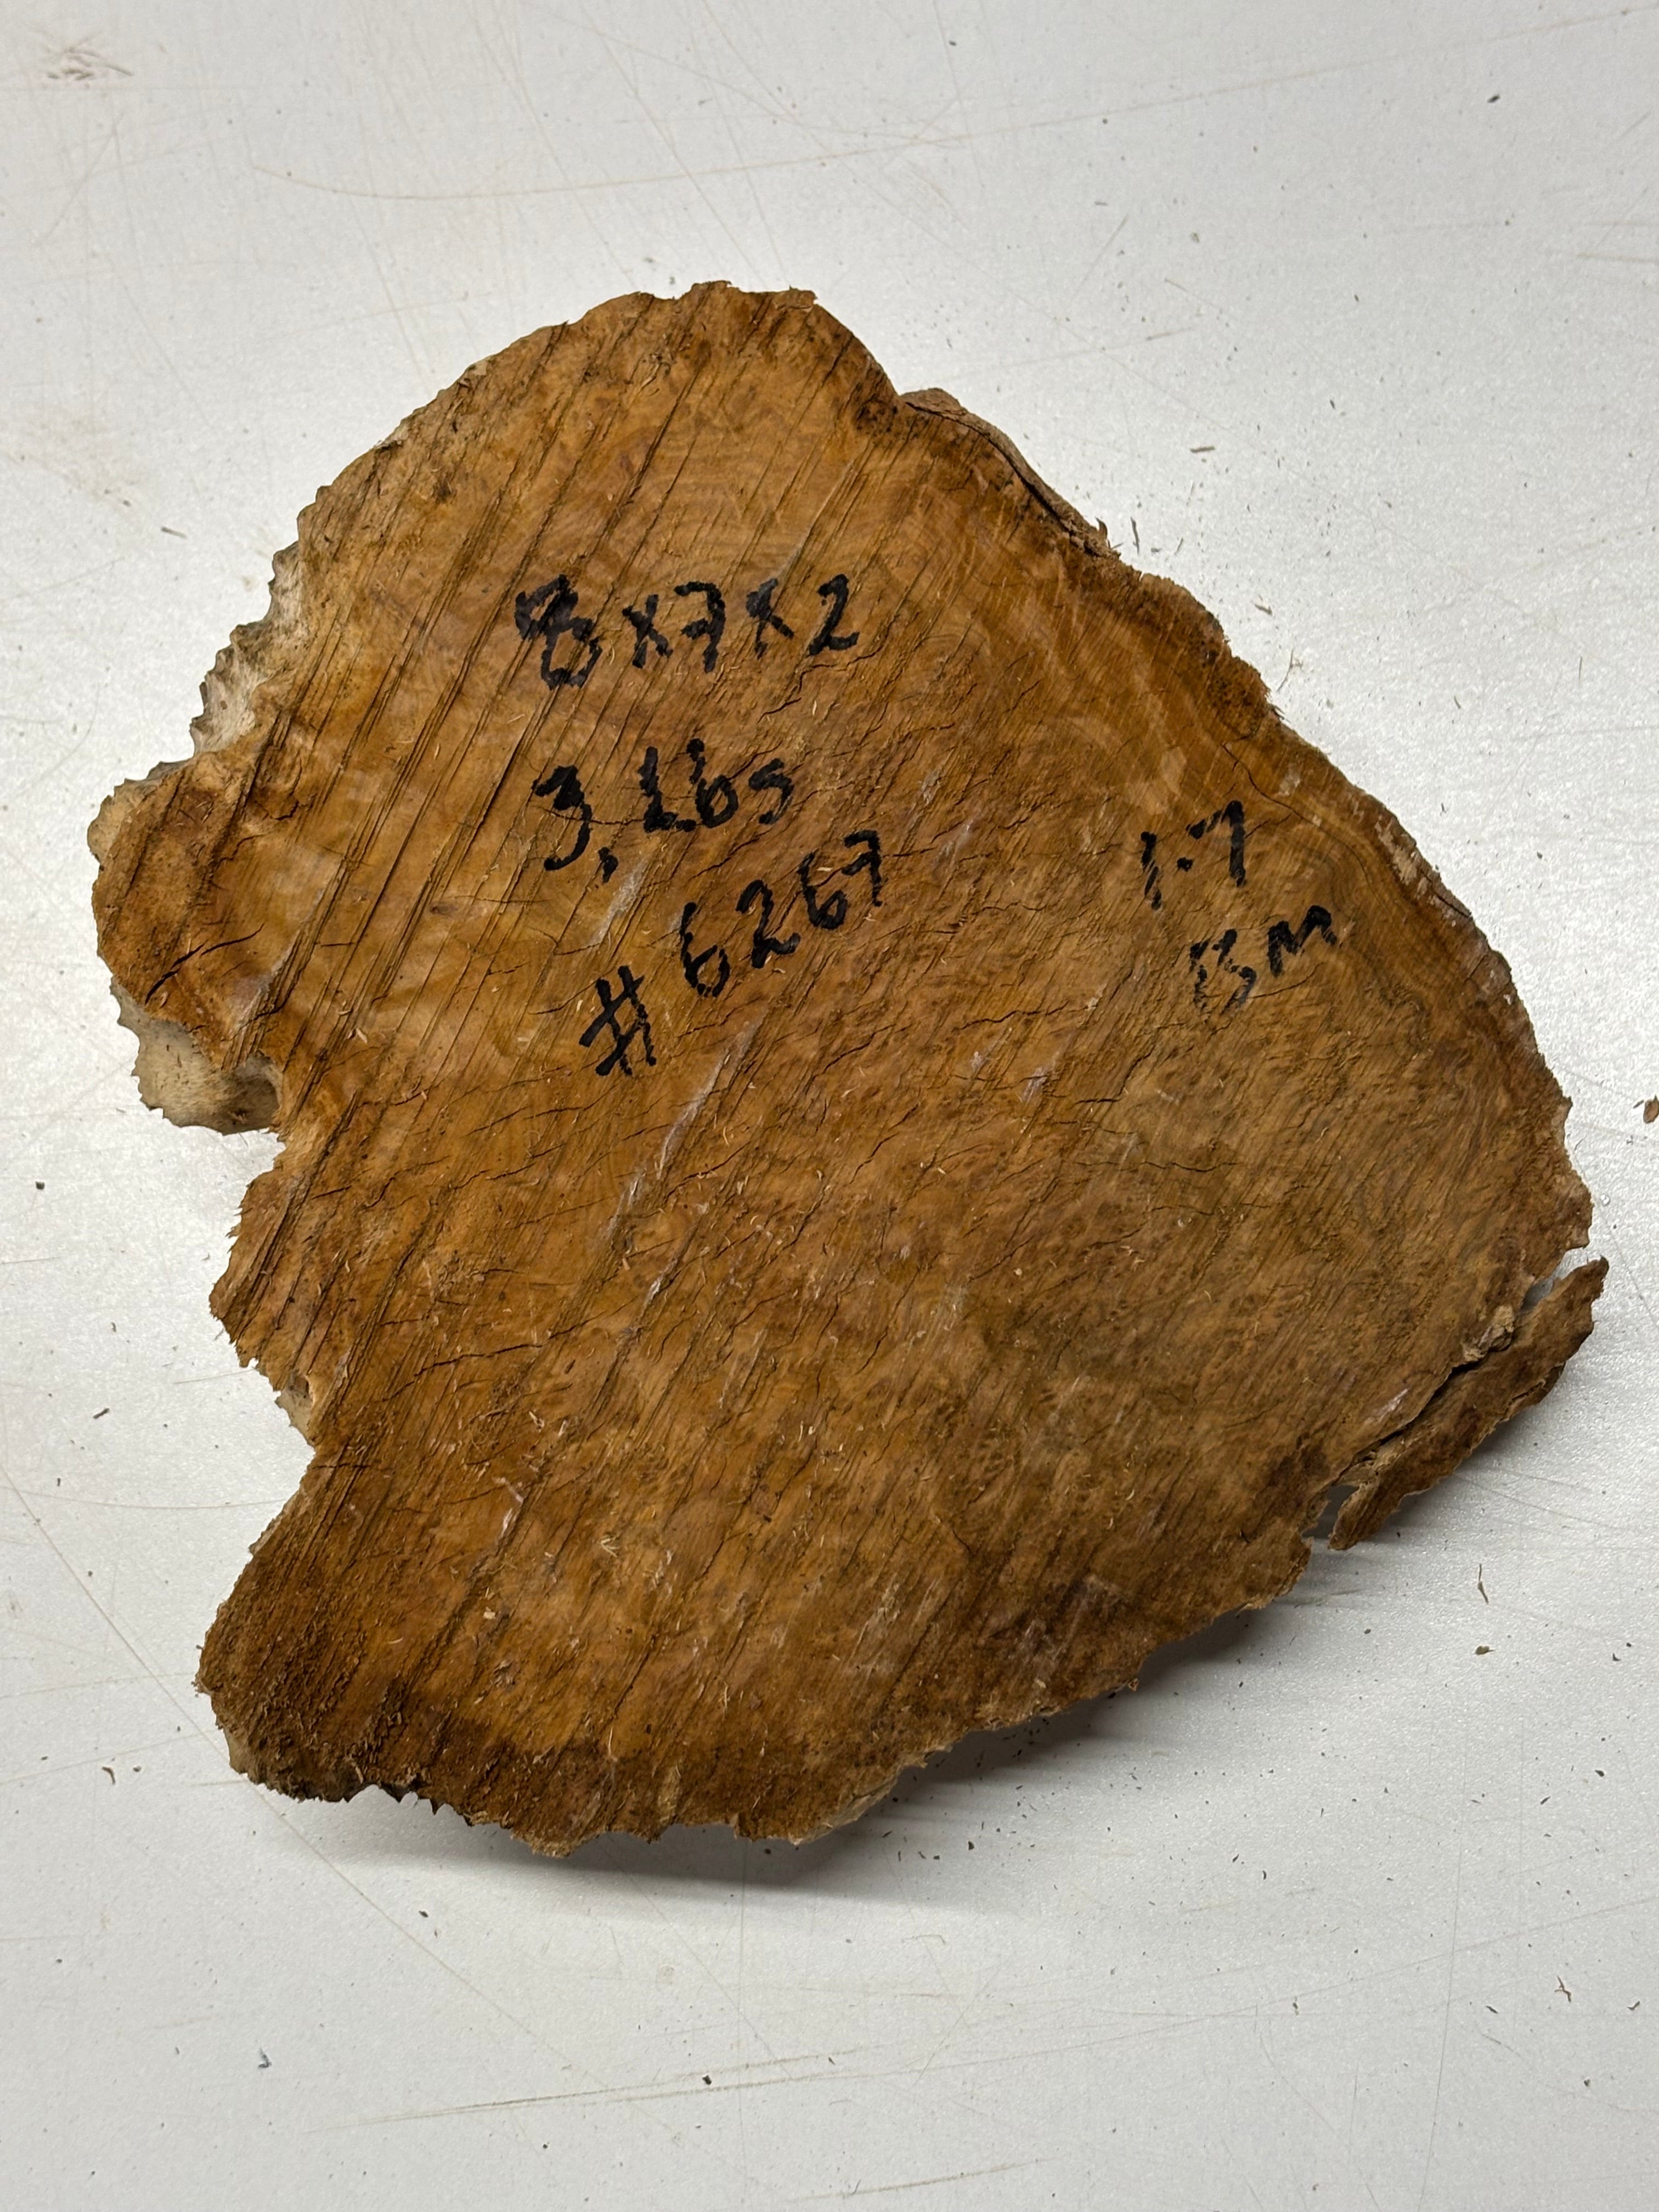 8x7x2
3, Lbs
# 6267
1-7
BM